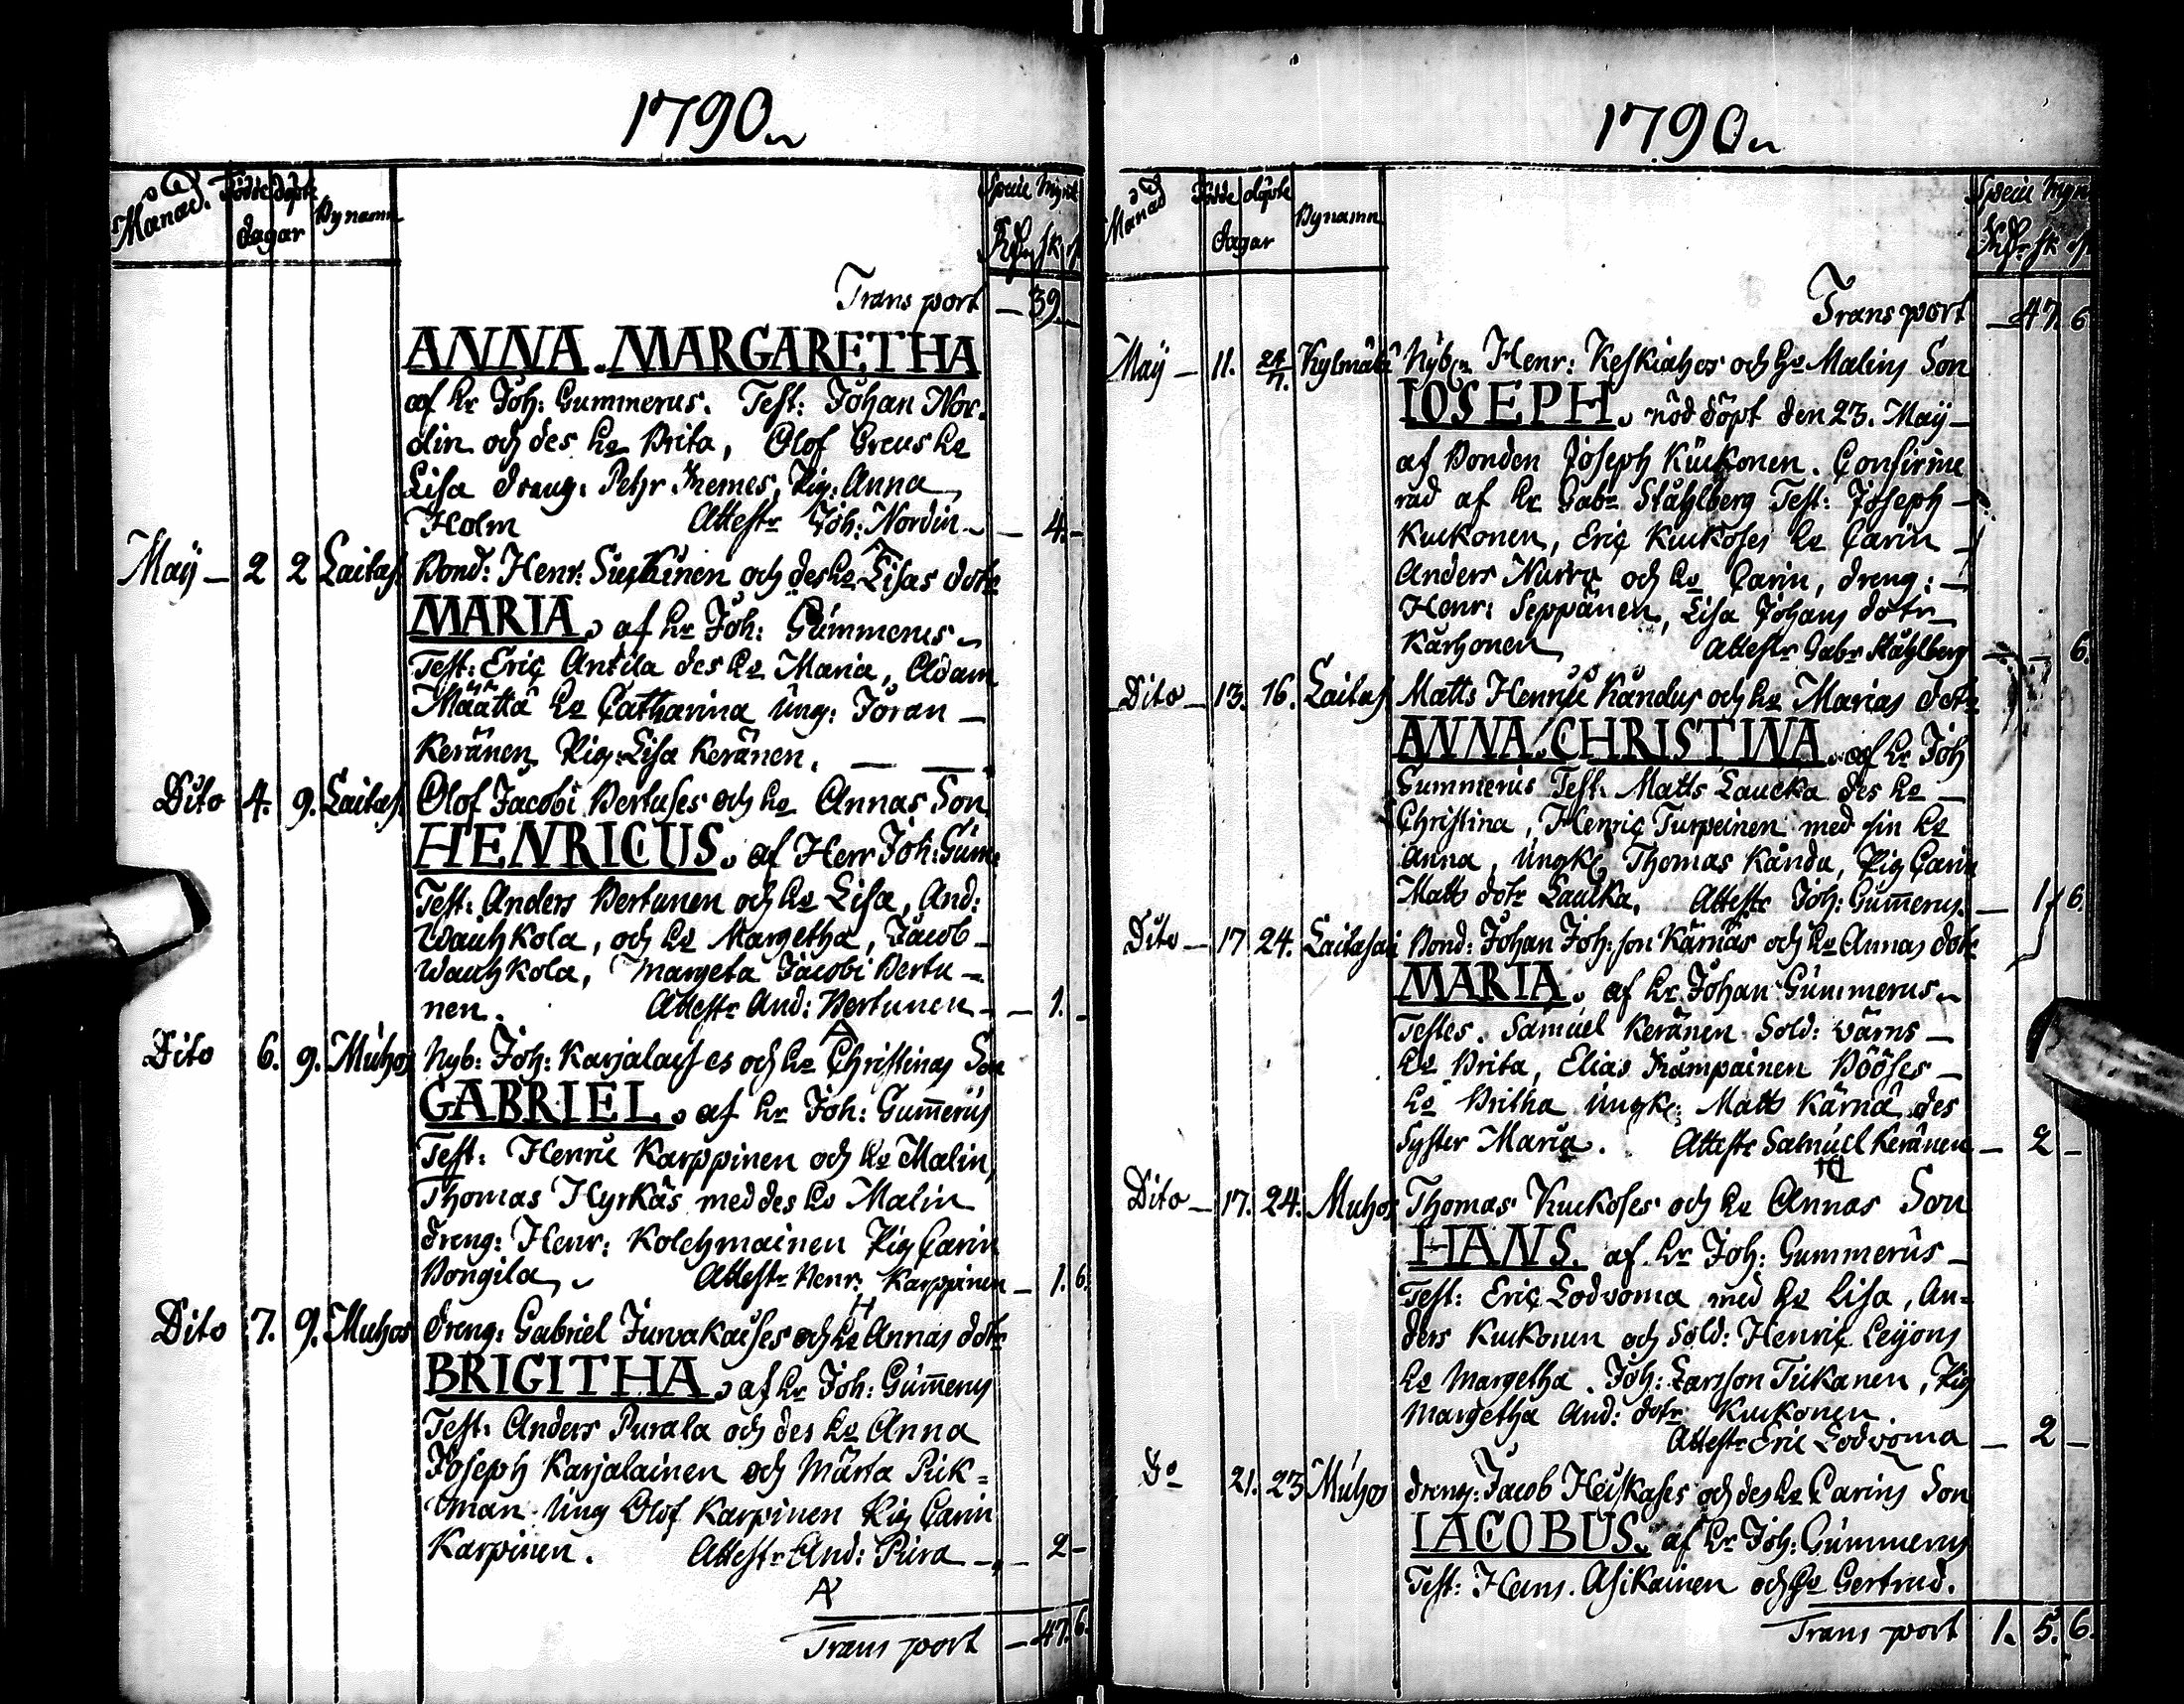 1790
Månad. Födde döpte Bynamn Specie Mynt
dagar Rdr sk. rst
Transport — 39. —
ANNA MARGARETHA
af hr Joh: Gummerus. Test: Johan Nor-
din och des ho Brita, Olof Greus ho
Lisa dreng: Petr Remes, Pig: Anna
Holm Attestr Joh: Nordin — 4. —
Maÿ — 2 2 Laitas. Bond: Henr: och des ho Lisas dotr
MARIA. af hr Joh: Gummerus
Test: Eric Antila des ho Maria, Adam
Määttä ho Catharina ung: Jöran —
Keränen Pig: Lisa Keränen. — —
Dito 4. 9. Laitas. Olof Jacobi Bertuses och ho Annas Son
HENRICUS. af Herr Joh: Gum:
Test: Anders Bertunen och ho Lisa, And:
Wauhkola, och ho Margetha, Jacob
Wauhkola, Margeta Jacobi Bertu-
nen. Attestr And: Bertunen — 1. —
Dito 6. 9. Muhos Nyb: Joh: Karjalaises och ho Christinas Son
GABRIEL. af hr Joh: Gum̄erus
Test: Henric Karppinen och ho Malin,
Thomas Hyrkäs med des ho Malin
dreng: Henr: Kolehmainen Pig Carin
Pongila Attestr Henr: Karppinen — 1. 6.
Dito 7. 9. Muhos dreng: Gabriel Juvakaises och ho Annas dotr
BRIGITHA. af hr Joh: Gum̄erus
Test: Anders Purala och des ho Anna
Joseph Karjalainen och Märta Piik=
man Ung Olof Karpinen Pig Carin
Karpinen. Attestr And: Pura — 2 —
Transport — 47. 6.
1790
Månad Födde döpte Bynamn Specie Mynt
dagar Rdr sk rst
Transport — 47. 6
Maÿ — 11. 24/7. Kylmälä Nyb: Henr: Keskiahos och ho Malins Son
IOSEPH. nöddöpt den 23. Maÿ —
af Bonden Joseph Kuckonen. Confirme
rad af hr Gabr Ståhlberg Test: Joseph —
Kuckonen, Eric Kuckoses ho Carin —
Anders Nurro och ho Carin, dreng: —
Henr: Seppänen, Lisa Johans dotr
Karhonen Attestr Gabr Ståhlberg — — 6.
Dito — 13. 16. Laitas. Matts Henrici Kändus och ho Marias dotr
ANNA CHRISTINA. af hr Joh
Gummerus Test: Matts Laucka des ho —
Christina, Henric Turpeinen med sin ho
Anna, Ungk: Thomas Kändu, Pig Carin
Matts dotr Laucka. Attestr Joh: Gum̄erus. — 1 6.
Dito — 17 24. Laitasari Bond: Johan Joh: son Kärnäs och ho Annas dotr
MARIA. af hr Johan Gummerus
Testes. Samuel Keränen Sold: Värns —
ho Brita, Elias Kämpainen Bööses —
ho Britha Ungk: Matts Kärnä des
Syster Maria. Attestr Samuel Keränen — 2 —
Dito — 17. 24. Muhos Thomas Kuckoses och ho Annas Son
HANS. af hr Joh: Gummerus —
Test: Eric Lodvoma med ho Lisa, An-
ders Kuckonen och Sold: Henric Leÿons
ho Margetha. Joh: Larsson Tikanen, Pig
Margetha And: dotr Kuckonen.
Attestr Eric Lodvoma — 2 —
Do 21. 23 Muhos dreng: Jacob Heiskases och des ho Carins Son
IACOBUS. af hr Joh: Gummerus
Test: Hans. Asikainen och ho Gertrud.
Transport 1. 5. 6.